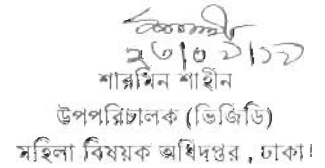 শারমিন শাহীন
উপপরিচালক (ভিজিডি)
মহিলা বিষয়ক অধিদপ্তর , ঢাকা।